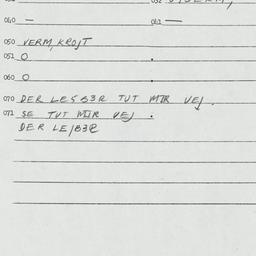 040 — 042 —
050 VERM, KROJT
051 O
060 O
070 DER LESB3R TUT MIR VEJ.
071 SE TUT MIR VEJ.
DER LEJB3R